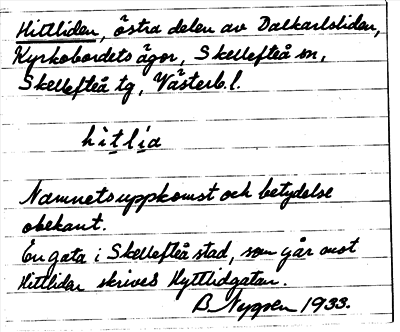 Hittliden, östra delen av Dalkarlsliden,
Kyrkobordets ägor, Skellefteå sn,
Skellefteå tg, Västerb. l.
hitlia
Namnets uppkomst och betydelse
obekant.
En gata i Skellefteå stad, som går mot
Hittliden skrives Hyttlidgatan.
B. Nygren 1933.